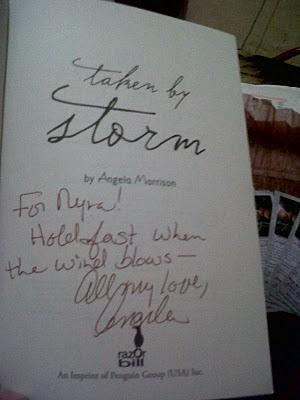 taken by
storm
by Angela Morrison
For Myra!
Hold fast when
the wind blows—
All my love,
Angela
razOr
bill
An Imprint of Penguin Group (USA) Inc.